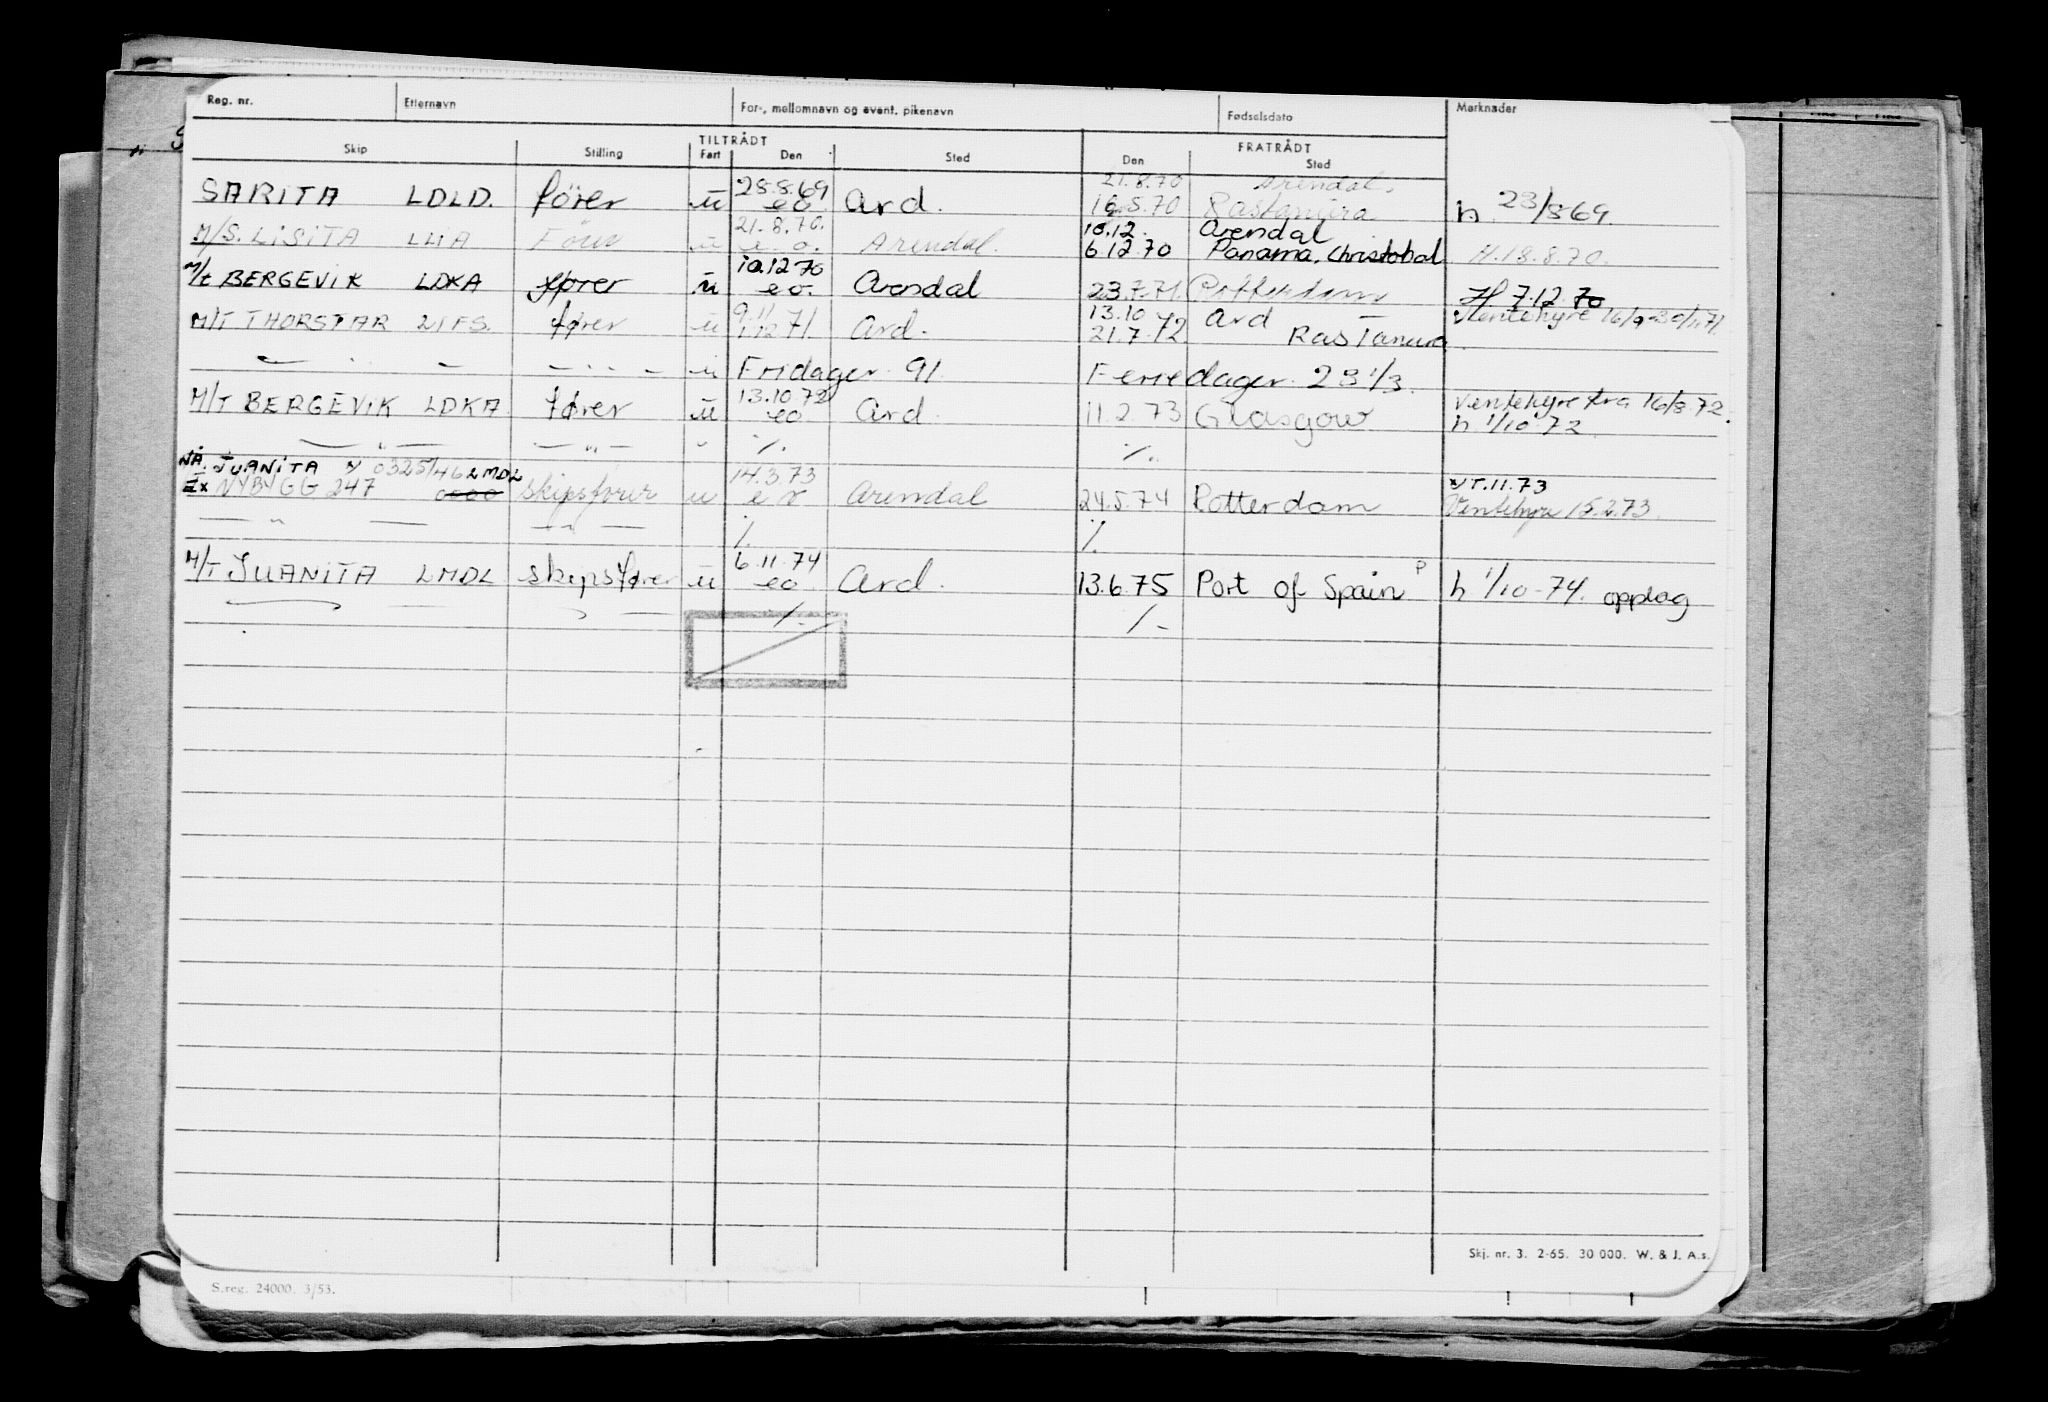 Reg. nr. Etternavn For-, mellomnavn og event. pikenavn Fødselsdato Merknader
TILTRÅDT FRATRÅDT
Skip Stilling Fart Den Sted Den Sted
28.8.69 21.8.70 Arendal.
SARITA LDLD. fører u eo. Ard. 16.5.70 Rastanura h. 23/8 69.
21.8.70. 10.12. Arendal
M/S. LISITA u e.o. Arendal. 6.12.70 Panama, Christobal H.18.8.70.
10.12 70
M/t BERGEVIK LDKA fører u eo. Arendal 23.7.71. Rotterdam H 7.12.70
9.11 13.10 Ard Ventehyre 16/9-30/11.71
M/T THORSTAR fører u 1.12 71. Ard. 21.7.72 Ras Tanura
— „ — — „ — u Fridager 91 Feriedager. 23 1/3.
13.10.72 Ventehyre fra 16/8.72.
M/T BERGEVIK LDKA fører u eo Ard. 11.2.73 Glasgow h 1/10 72
— „ — — „ — „ %. %.
NÅ. JUANITA LMDL 14.3.73 11.73
Ex NYBYGG 247 skipsfører u Arendal 24.5.74 Rotterdam Ventehyre 15.2.73.
— „ — — „ — %. %.
6.11.74
M/T JUANITA LMDL skipsfører u eo. Ard. 13.6.75 Port of Spain P h 1/10-74. opplag
%. %.
Skj. nr. 3. 2-65. 30 000. W. & J. A.s.
S.reg. 24000. 3/53.